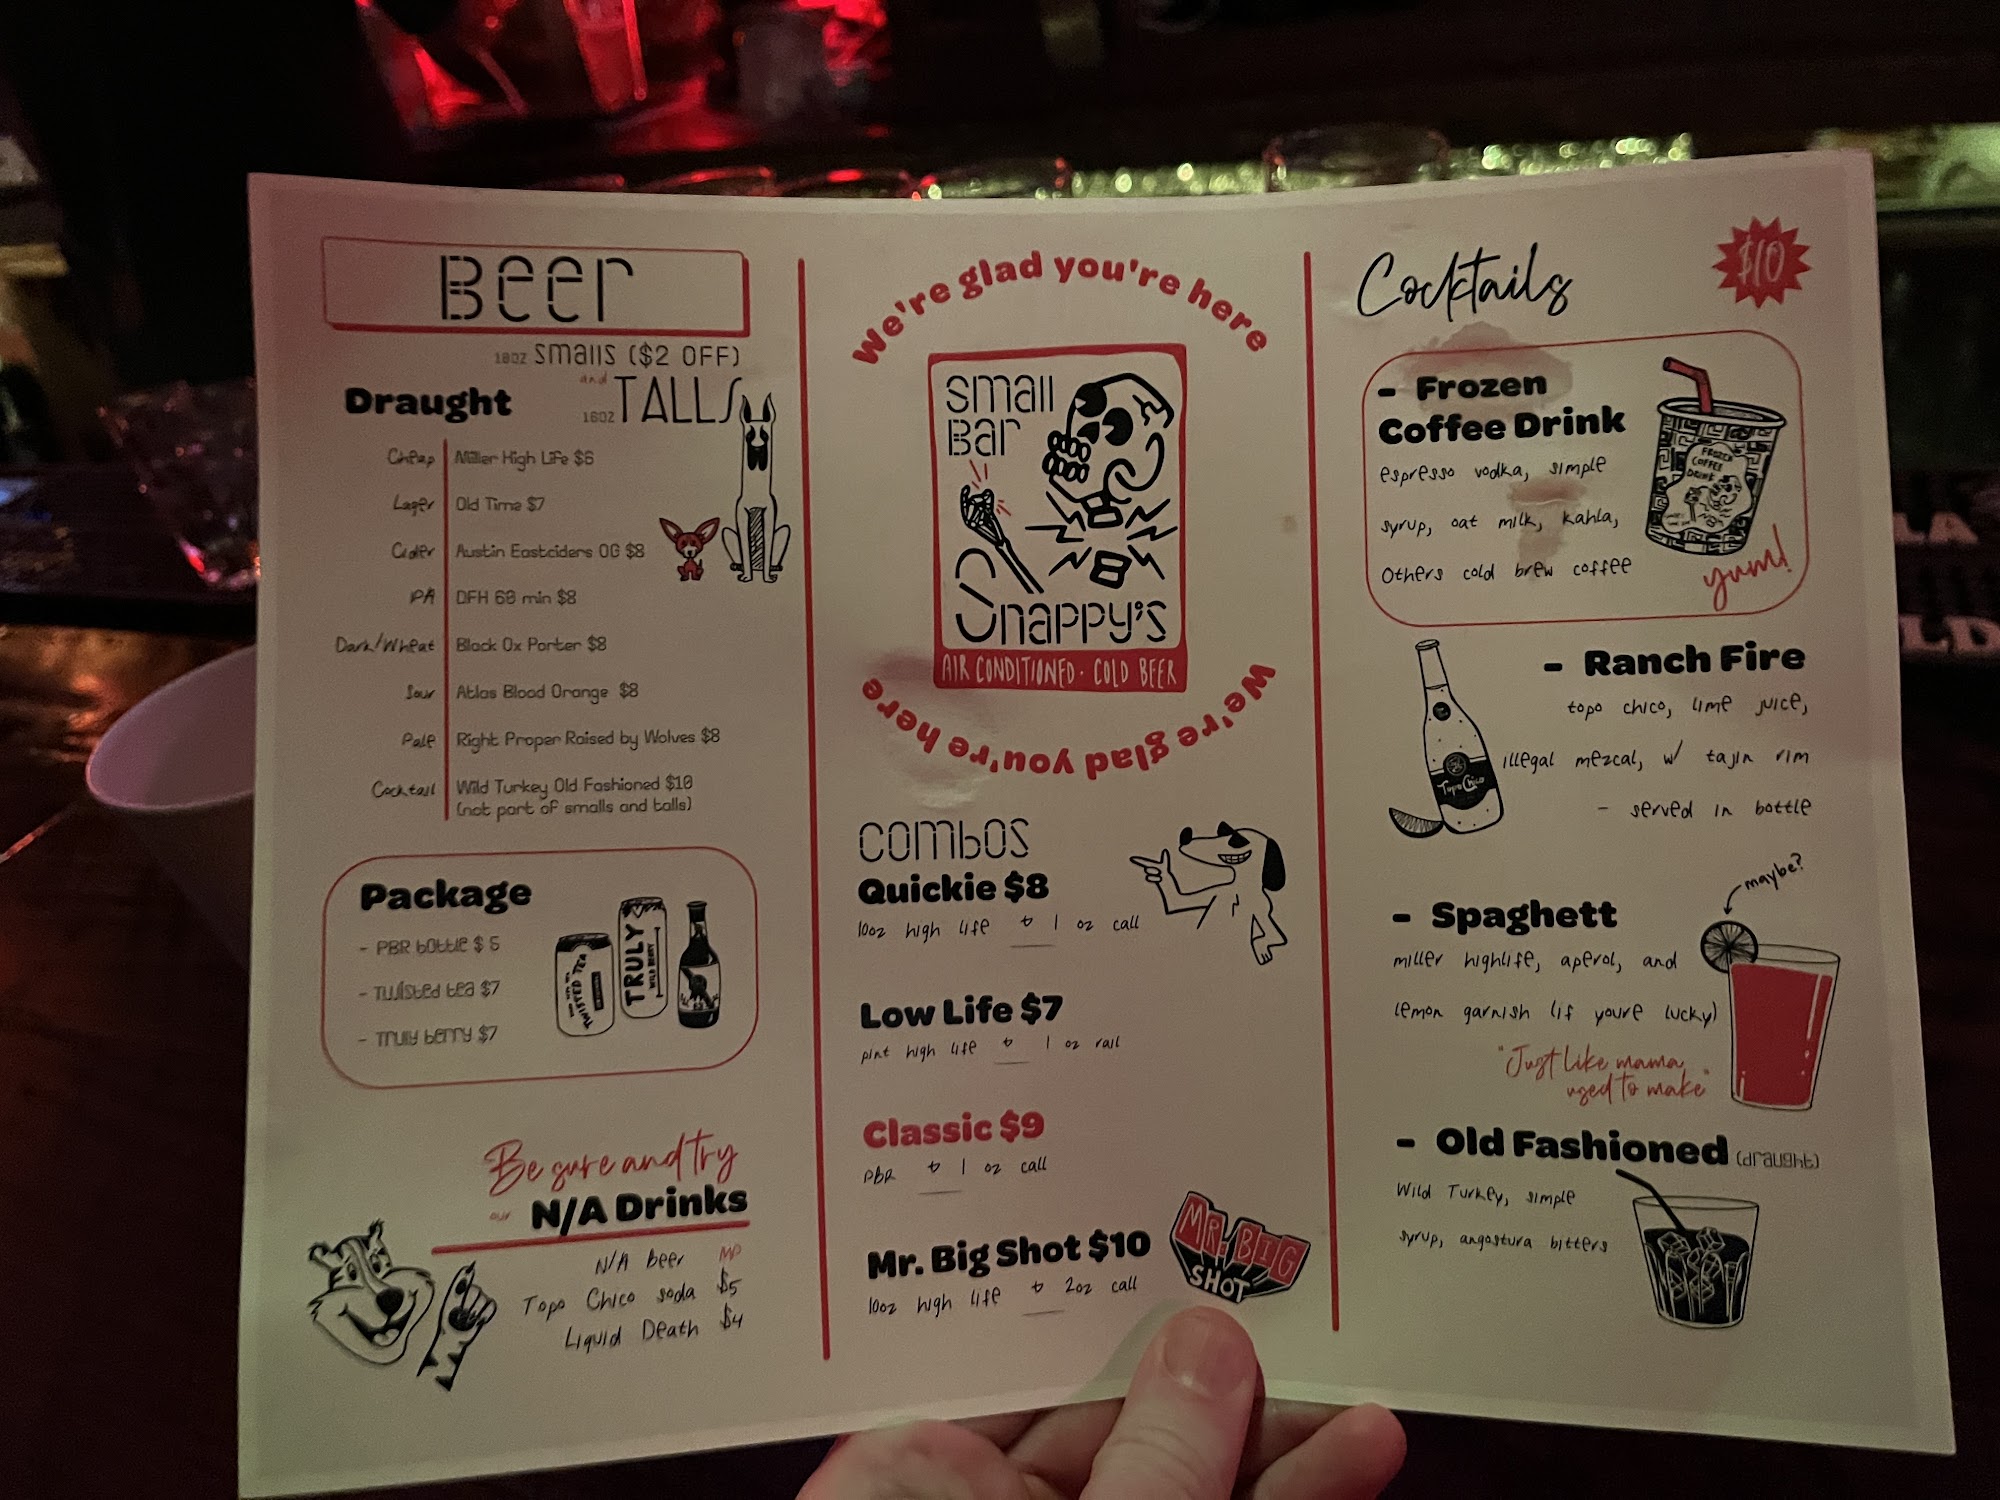 Beer
10oz smalls ($2 OFF)
and
16oz TALLS
Draught
Cheap Miller High Life $6
Lager Old Time $7
Cider Austin Eastciders OG $8
IPA DFH 60 min $8
Dark/Wheat Black Ox Porter $8
Sour Atlas Blood Orange $8
Pale Right Proper Raised by Wolves $8
Cocktail Wild Turkey Old Fashioned $10
(not part of smalls and talls)
Package
- PBR bottle $5
- Twisted tea $7
- Truly berry $7
TWISTED TEA
TRULY
WILD BERRY
Be sure and try
our N/A Drinks
N/A beer MP
Topo Chico soda $5
Liquid Death $4
We're glad you're here
small
Bar
Snappy's
AIR CONDITIONED · COLD BEER
We're glad you're here
combos
Quickie $8
10oz high life & 1 oz call
Low Life $7
pint high life & 1 oz rail
Classic $9
PBR & 1 oz call
Mr. Big Shot $10
10oz high life & 2oz call
MR. BIG
SHOT
Cocktails
$10
- Frozen
Coffee Drink
espresso vodka, simple
syrup, oat milk, kahla,
Others cold brew coffee
FROZEN
COFFEE
DRINK
yum!
- Ranch Fire
topo chico, lime juice,
illegal mezcal, w/ tajin rim
- served in bottle
Topo Chico
maybe?
- Spaghett
miller highlife, aperol, and
lemon garnish (if youre lucky)
"Just like mama
used to make"
- Old Fashioned (draught)
Wild Turkey, simple
syrup, angostura bitters